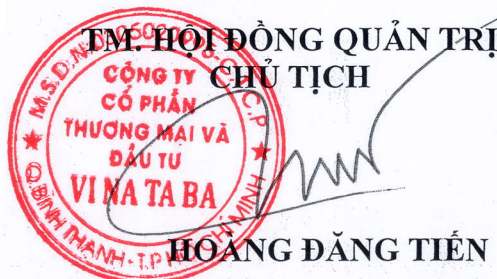 TM. HỘI ĐỒNG QUẢN TRỊ
CHỦ TỊCH
CÔNG TY
CỔ PHẦN
THƯƠNG MẠI VÀ
ĐẦU TƯ
VI NA TA BA
Q.BÌNH THẠNH-T.P HỒ CHÍ MINH
HOÀNG ĐĂNG TIẾN